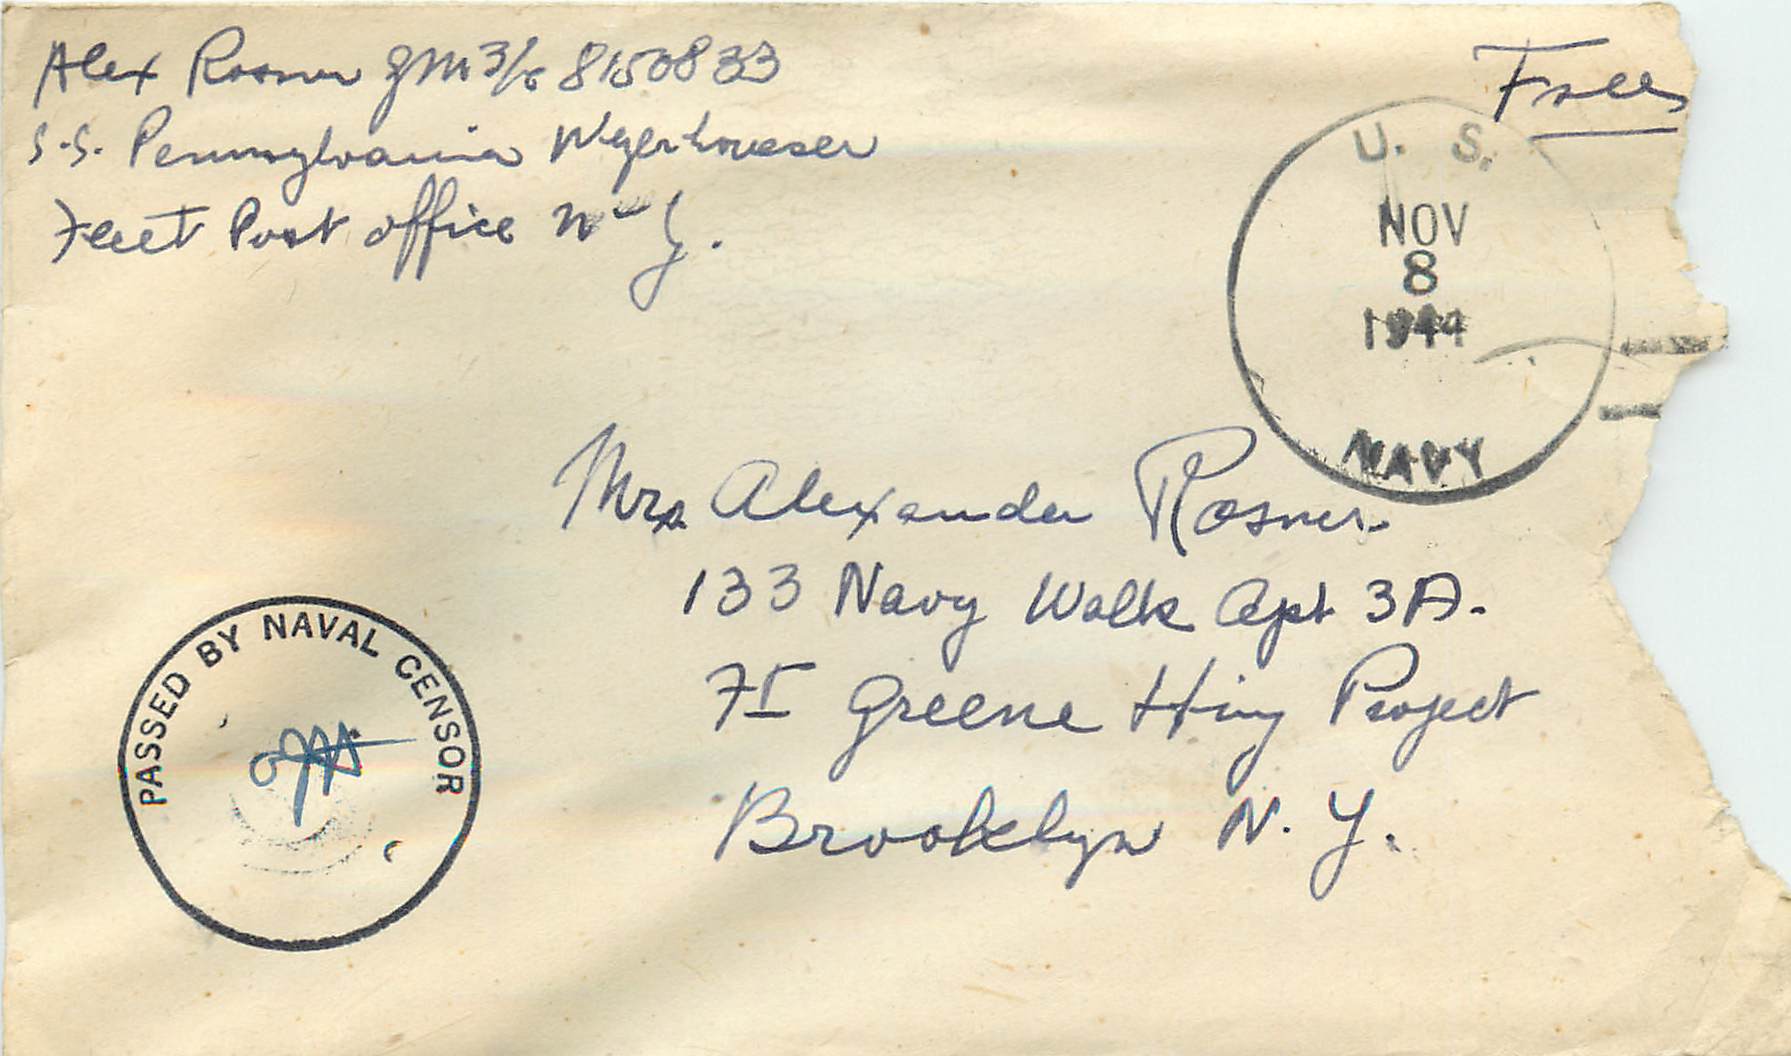 Alex Rosner GM 3/c 8150833
S.S. Pennsylvania Wyerhoueser
Fleet Post office N-Y.
Free
U. S.
NOV
8
1944
NAVY
Mrs Alexander Rosner
133 Navy Walk Apt 3A.
Ft Greene Hsing Project
Brooklyn N. Y.
PASSED BY NAVAL CENSOR